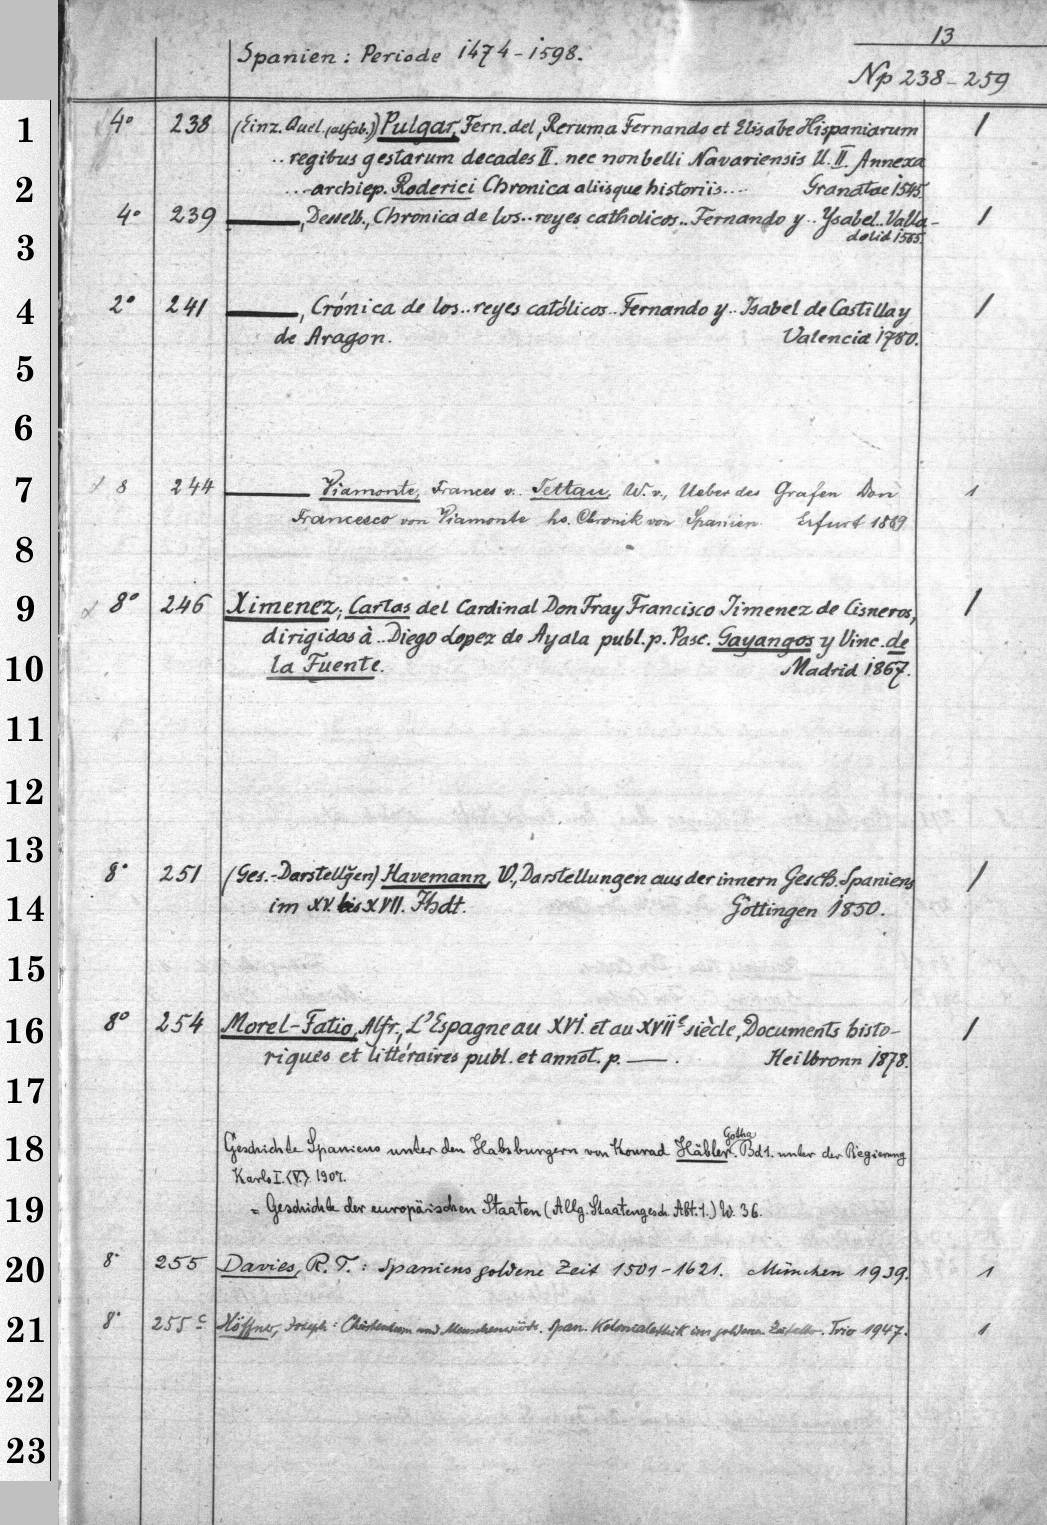 13
Spanien: Periode 1474-1598.
Np 238-259
1 4° 238 (Einz. Quel. (alfab.)) Pulgar, Fern. del, Reruma Fernando et Elisabe Hispaniarum 1
.. regibus gestarum decades II. nec non belli Navariensis ll. II. Annexa
2 ... archiep. Roderici Chronica aliisque historiis.... Granatae 1545.
4° 239 ———, Desselb., Chronica de los.. reyes catholicos.. Fernando y.. Ysabel.. Valla- 1
3 dolid 1565.
4 2° 241 ———, Crónica de los.. reyes católicos.. Fernando y.. Isabel de Castilla y 1
de Aragon. Valencia 1780.
5
6
7 8 244 ——— Viamonte, Frances v. Tettau, W. v., Ueber des Grafen Don 1
Francesco von Viamonte hs. Chronik von Spanien. Erfurt 1869
8
9 8° 246 Ximenez, Cartas del Cardinal Don Fray Francisco Jimenez de Cisneros, 1
dirigidas à.. Diego Lopez de Ayala publ. p. Pasc. Gayangos y Vinc. de
10 la Fuente. Madrid 1867.
11
12
13
8° 251 (Ges.-Darstellgen) Havemann, W., Darstellungen aus der innern Gesch. Spaniens 1
14 im XV. bis XVII. Jhdt. Göttingen 1850.
15
16 8° 254 Morel-Fatio, Alfr., L'Espagne au XVI. et au XVIIe siècle, Documents histo- 1
riques et littéraires publ. et annot. p. ——. Heilbronn 1878.
17
18 Geschichte Spaniens unter den Habsburgern von Konrad Häbler. Gotha Bd 1. unter der Regierung
Karls I. (V.) 1907.
19 = Geschichte der europäischen Staaten (Allg. Staatengesch. Abt. 1.) W. 36.
20 8° 255 Davies, R. T.: Spaniens goldene Zeit 1501-1621. München 1939. 1
21 8° 255 c Höffner, Joseph: Christentum und Menschenwürde. Span. Kolonialethik im goldenen Zeitalter. Trier 1947. 1
22
23